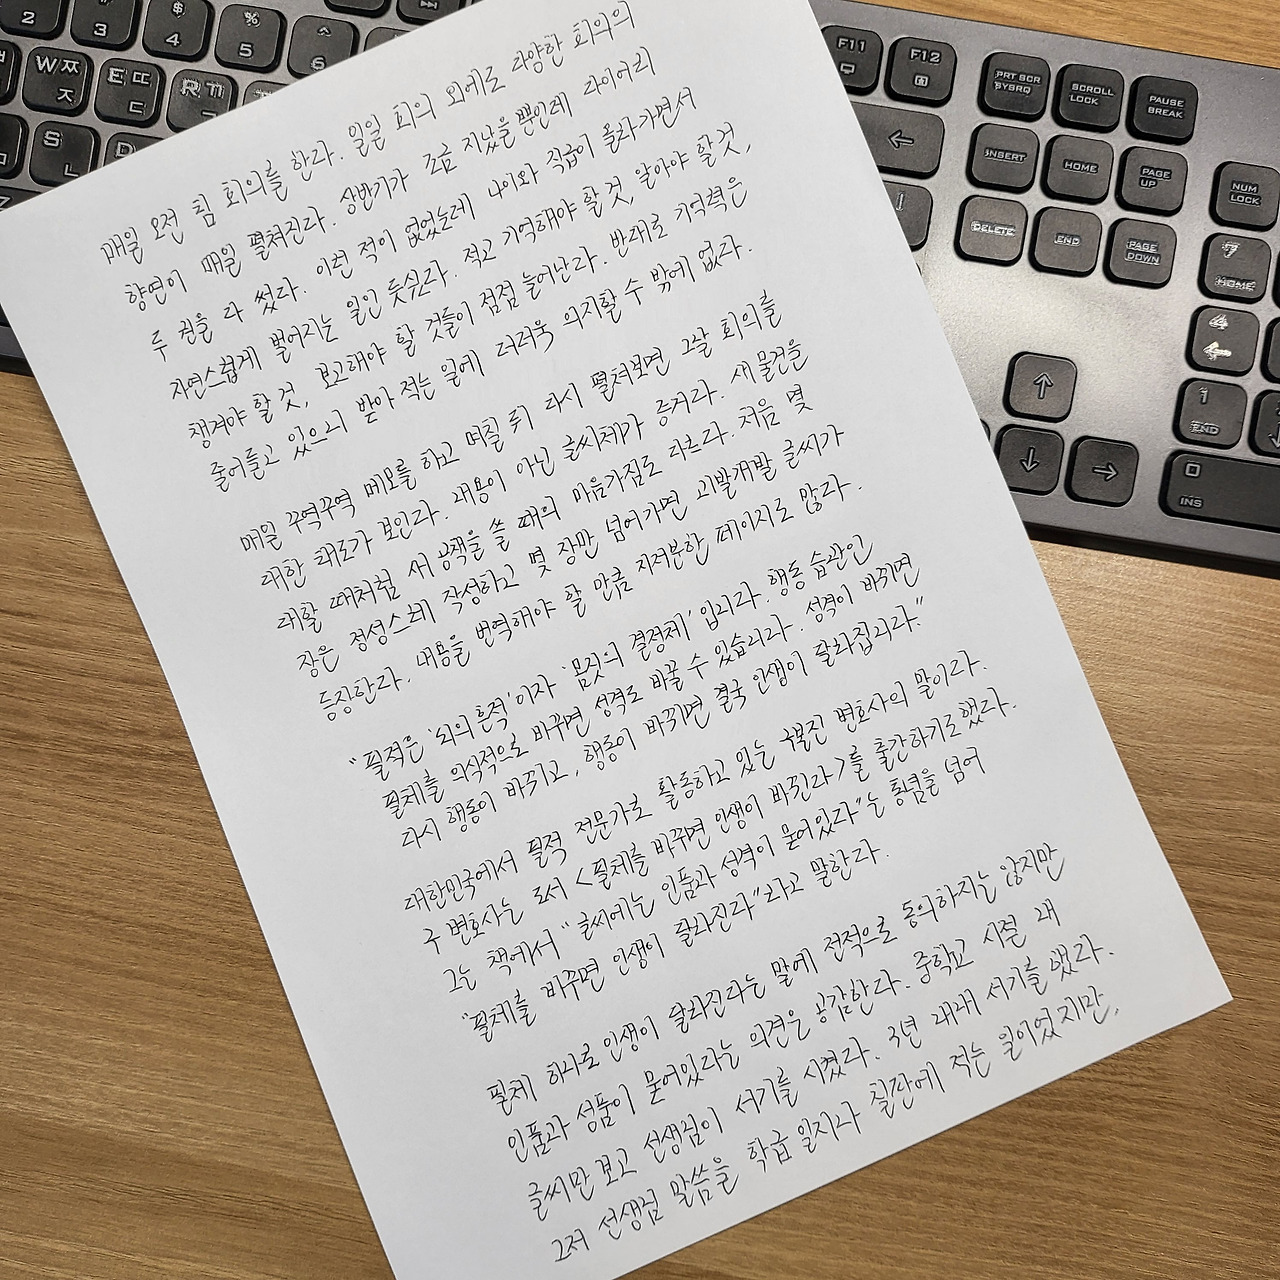 매일 오전 팀 회의를 한다. 일일 회의 외에도 다양한 회의의
향연이 매일 펼쳐진다. 상반기가 조금 지났을 뿐인데 다이어리
두 권을 다 썼다. 이런 적이 없었는데 나이와 직급이 올라가면서
자연스럽게 벌어지는 일인 듯싶다. 적고 기억해야 할 것, 알아야 할 것,
챙겨야 할 것, 보고해야 할 것들이 점점 늘어난다. 반대로 기억력은
줄어들고 있으니 받아 적는 일에 더더욱 의지할 수 밖에 없다.
매일 꾸역꾸역 메모를 하고 며칠 뒤 다시 펼쳐보면 그날 회의를
대한 태도가 보인다. 내용이 아닌 글씨체가 증거다. 새 물건을
대할 때처럼 새 공책을 쓸 때의 마음가짐도 다르다. 처음 몇
장은 정성스레 작성하고 몇 장만 넘어가면 괴발개발 글씨가
등장한다. 내용을 번역해야 할 만큼 지저분한 페이지도 많다.
"필적은 '뇌의 흔적'이자 '몸짓의 결정체' 입니다. 행동 습관인
필체를 의식적으로 바꾸면 성격도 바꿀 수 있습니다. 성격이 바뀌면
다시 행동이 바뀌고, 행동이 바뀌면 결국 인생이 달라집니다."
대한민국에서 필적 전문가로 활동하고 있는 구본진 변호사의 말이다.
구 변호사는 도서 <필체를 바꾸면 인생이 바뀐다>를 출간하기도 했다.
그는 책에서 "글씨에는 인품과 성격이 묻어있다"는 통념을 넘어
"필체를 바꾸면 인생이 달라진다"라고 말한다.
필체 하나로 인생이 달라진다는 말에 전적으로 동의하지는 않지만
인품과 성품이 묻어있다는 의견은 공감한다. 중학교 시절 내
글씨만 보고 선생님이 서기를 시켰다. 3년 내내 서기를 했다.
그저 선생님 말씀을 학급 일지나 칠판에 적는 일이었지만,
2
3
$
4
%
5
^
6
W ㅉ
ㅈ
E ㄸ
ㄷ
R ㄲ
S
ㄴ
D
F11
F12
PRT SCR
SYSRQ
SCROLL
LOCK
PAUSE
BREAK
INSERT
HOME
PAGE
UP
NUM
LOCK
DELETE
END
PAGE
DOWN
7
HOME
4
1
END
0
INS